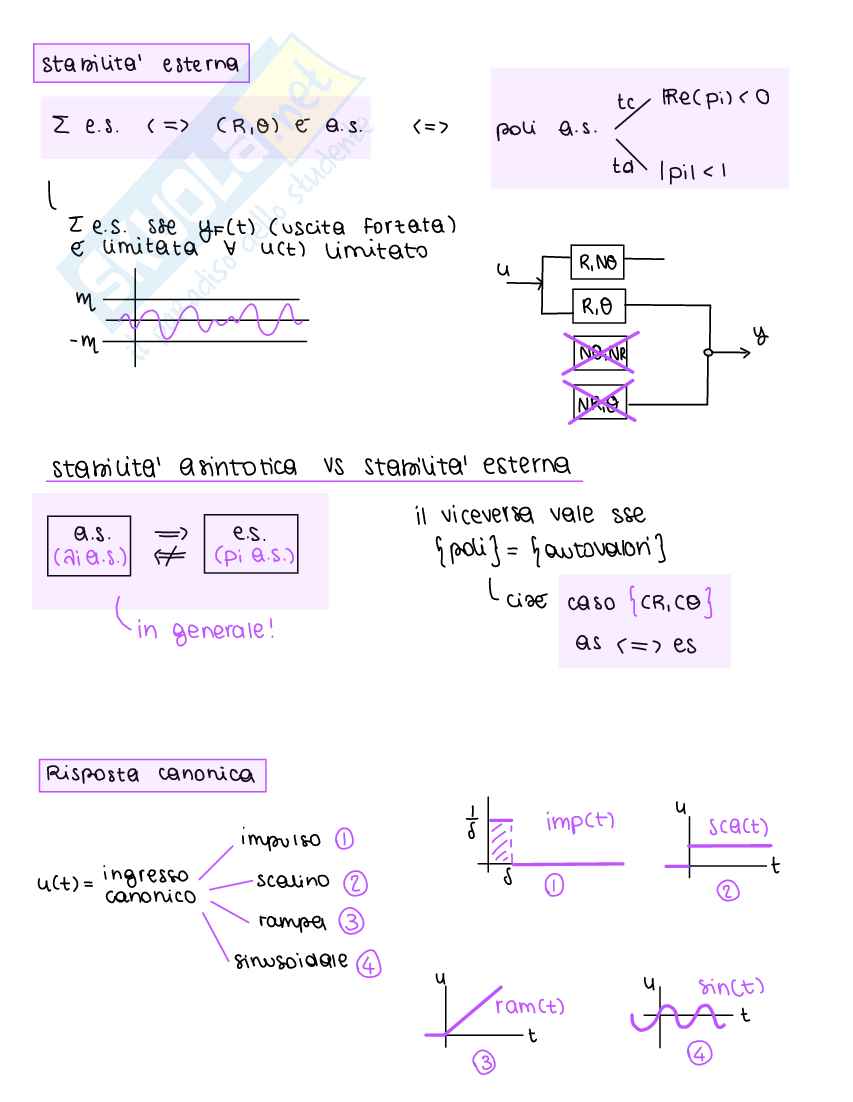 stabilita' esterna
Σ e.s. <=> (R,Θ) è a.s. <=> poli a.s.
tc Re(pi) < 0
td |pi| < 1
Σ e.s. sse yF(t) (uscita forzata)
è limitata ∀ u(t) limitato
m
-m
u
R,NΘ
R,Θ
NΘ,NR
NR,Θ
y
stabilita' asintotica vs stabilita' esterna
a.s. => e.s.
(λi a.s.) <≠ (pi a.s.)
in generale!
il viceversa vale sse
{poli} = {autovalori}
cioè caso {CR, CΘ}
as <=> es
Risposta canonica
u(t) = ingresso
canonico
impulso 1
scalino 2
rampa 3
sinusoidale 4
1/δ
imp(t)
δ
1
u
sca(t)
t
2
u
ram(t)
t
3
u
sin(t)
t
4
SKUOLA.net
il paradiso dello studente